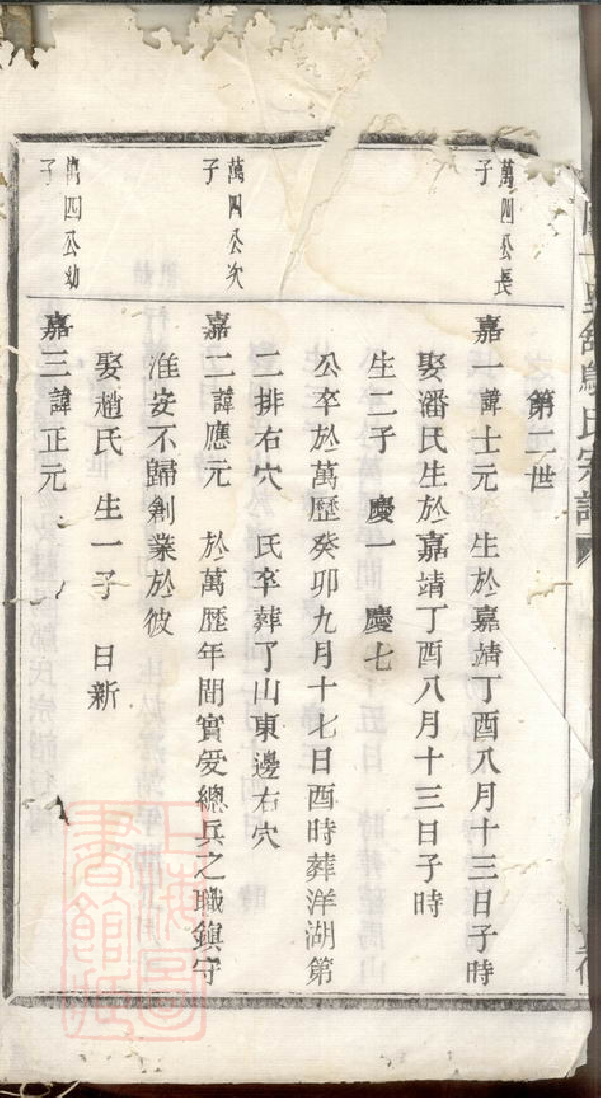 第二世
萬四公長
子
嘉一諱士元 生於嘉靖丁酉八月十三日子時
娶潘氏生於嘉靖丁酉八月十三日子時
生二子 慶一 慶七
公卒於萬歷癸卯九月十七日酉時葬洋湖第
二排右穴 氏卒葬了山東邊右穴
萬四公次
子
嘉二諱應元 於萬歷年間實爰總兵之職鎮守
淮安不歸創業於彼
娶趙氏 生一子 日新
萬四公幼
子
嘉三諱正元
氏宗譜
上海圖
書館藏